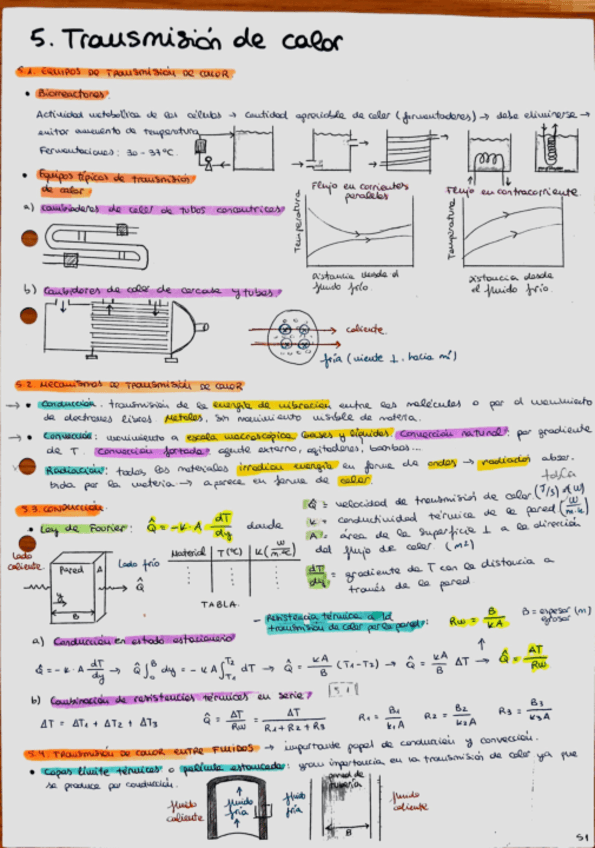 5. Transmisión de calor
5.1. EQUIPOS DE TRANSMISIÓN DE CALOR
• Biorreactores.
Actividad metabólica de las células → cantidad apreciable de calor (fermentadores) → debe eliminarse →
evitar aumento de temperatura
Fermentaciones: 30-37ºC.
• Equipos típicos de transmisión
de calor
a) cambiadores de calor de tubos concéntricos
Flujo en corrientes
paralelas
Temperatura
Distancia desde el
fluido frío.
Flujo en contracorriente
Temperatura
Distancia desde
el fluido frío.
b) Cambiadores de calor de carcasa y tubos
caliente
fría (viente ⊥ hacia mí)
5.2 MECANISMOS DE TRANSMISIÓN DE CALOR
→ • Conducción. transmisión de la energía de vibración entre las moléculas o por el movimiento
de electrones libres. Metales, sin movimiento visible de materia.
→ • Convección: movimiento a escala macroscópica. Gases y líquidos. Convección natural: por gradiente
de T. Convección forzada: agente externo, agitadores, bombas...
• Radiación: todos los materiales irradian energía en forma de ondas → radiación absor-
bida por la materia → aparece en forma de calor.
5.3. CONDUCCIÓN.
• Ley de Fourier: Q̂ = -k·A·dT/dy donde
Q̂ = velocidad de transmisión de calor (J/s) (W)
k = conductividad térmica de la pared (W/m·K)
A = área de la superficie ⊥ a la dirección
del flujo de calor (m²)
dT/dy = gradiente de T con la distancia a
través de la pared
Lado
caliente
Pared
A
B
Lado frío
Q̂
Material | T(ºC) | K(W/m·K)
TABLA.
- Resistencia térmica a la
transmisión de calor por la pared:
Rw = B/kA
B = espesor (m)
grosor
a) Conducción en estado estacionario
Q̂ = -k·A dT/dy → Q̂∫₀ᴮ dy = -kA∫T₁T₂ dT → Q̂ = kA/B (T₁-T₂) → Q̂ = kA/B ΔT → Q̂ = ΔT/Rw
b) Combinación de resistencias térmicas en serie
5.1
ΔT = ΔT₁ + ΔT₂ + ΔT₃ Q̂ = ΔT/Rw = ΔT/(R₁+R₂+R₃) R₁ = B₁/k₁A R₂ = B₂/k₂A R₃ = B₃/k₃A
5.4. TRANSMISIÓN DE CALOR ENTRE FLUIDOS → importante papel de conducción y convección.
• Capas límite térmicas o película estancada: gran importancia en la transmisión de calor ya que
se produce por conducción.
fluido
caliente
fluido
fría
fluido
frío
pared de
tubería
B
fluido
caliente
51